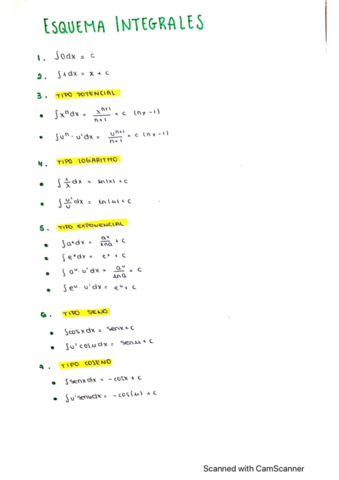 ESQUEMA INTEGRALES
1. ∫0dx = c
2. ∫1dx = x + c
3. TIPO POTENCIAL
• ∫xⁿdx = xⁿ⁺¹/n+1 + c (n≠-1)
• ∫uⁿ · u'dx = uⁿ⁺¹/n+1 + c (n≠-1)
4. TIPO LOGARITMO
• ∫1/x dx = ln|x| + c
• ∫u'/u dx = ln|u| + c
5. TIPO EXPONENCIAL
• ∫aˣdx = aˣ/lna + c
• ∫eˣdx = eˣ + c
• ∫aᵘ · u'dx = aᵘ/lna + c
• ∫eᵘ · u'dx = eᵘ + c
6. TIPO SENO
• ∫cosxdx = senx + c
• ∫u'cosudx = senu + c
7. TIPO COSENO
• ∫senxdx = -cosx + c
• ∫u'senudx = -cos(u) + c
Scanned with CamScanner